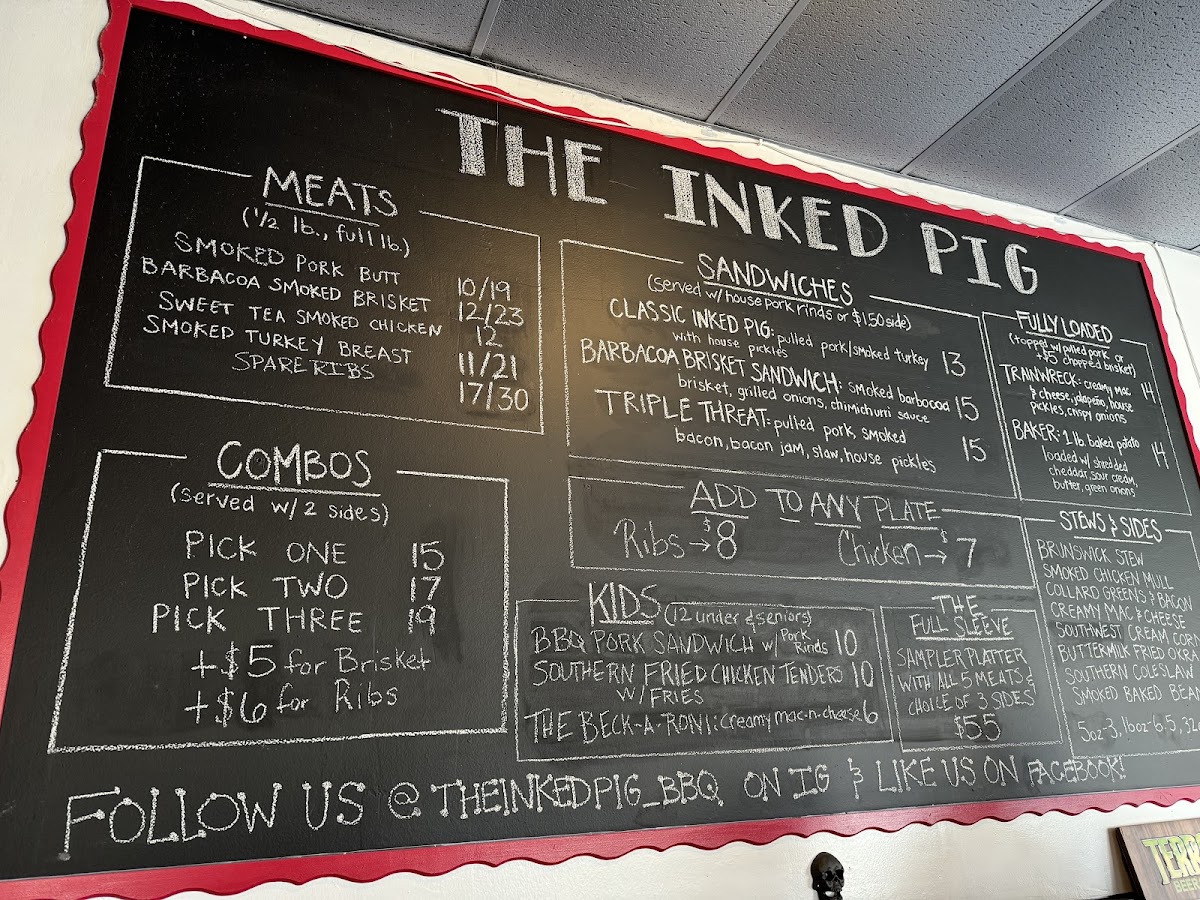 THE INKED PIG
MEATS
(1/2 lb., full lb.)
SMOKED PORK BUTT 10/19
BARBACOA SMOKED BRISKET 12/23
SWEET TEA SMOKED CHICKEN 12
SMOKED TURKEY BREAST 11/21
SPARERIBS 17/30
COMBOS
(served w/ 2 sides)
PICK ONE 15
PICK TWO 17
PICK THREE 19
+$5 for Brisket
+$6 for Ribs
SANDWICHES
(served w/ house pork rinds or $1.50 side)
CLASSIC INKED PIG: pulled pork/smoked turkey 13
with house pickles
BARBACOA BRISKET SANDWICH: smoked barbacoa 15
brisket, grilled onions, chimichurri sauce
TRIPLE THREAT: pulled pork, smoked 15
bacon, bacon jam, slaw, house pickles
FULLY LOADED
(topped w/ pulled pork or
+$5 chopped brisket)
TRAINWRECK: creamy mac 14
& cheese, jalapeño, house
pickles, crispy onions
BAKER: 1 lb. baked potato 14
loaded w/ shredded
cheddar, sour cream,
butter, green onions
ADD TO ANY PLATE
Ribs → $8 Chicken → $7
KIDS (12 under & seniors)
BBQ PORK SANDWICH w/ Pork Rinds 10
SOUTHERN FRIED CHICKEN TENDERS 10
W/ FRIES
THE BECK-A-RONI: creamy mac-n-cheese 6
THE
FULL SLEEVE
SAMPLER PLATTER
WITH ALL 5 MEATS &
CHOICE OF 3 SIDES
$55
STEWS & SIDES
BRUNSWICK STEW
SMOKED CHICKEN MULL
COLLARD GREENS & BACON
CREAMY MAC & CHEESE
SOUTHWEST CREAM COR
BUTTERMILK FRIED OKRA
SOUTHERN COLESLAW
SMOKED BAKED BEA
5oz-3, 16oz-6.5, 32
FOLLOW US @THEINKEDPIG_BBQ ON IG & LIKE US ON FACEBOOK!
BEER